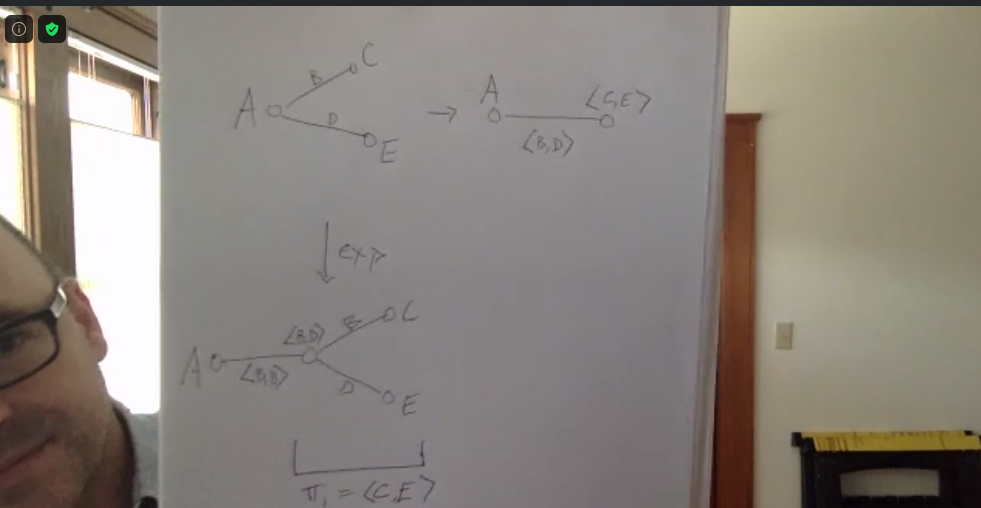 A B C D E → A ⟨B,D⟩ ⟨C,E⟩
↓ exp
A ⟨B,D⟩ ⟨B,D⟩ C D E
π₁ = ⟨C,E⟩